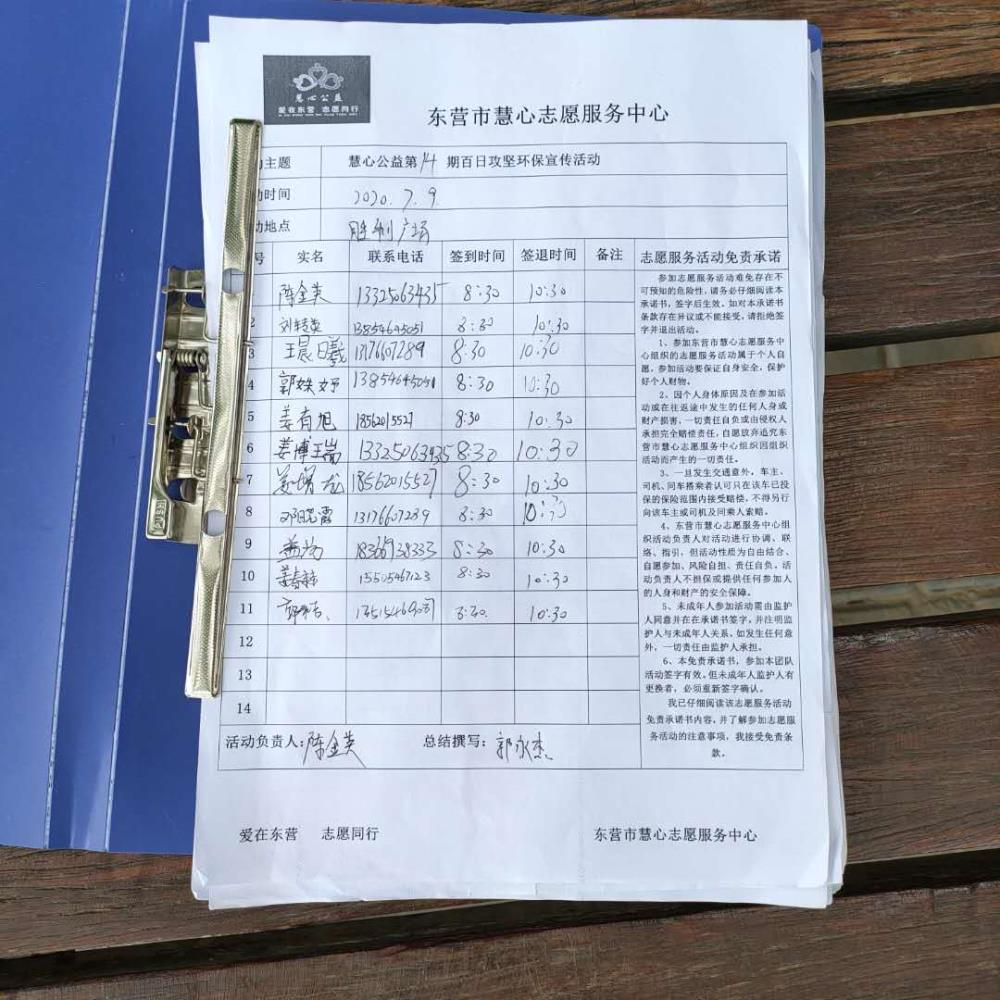 慧心公益
爱在东营 志愿同行
东营市慧心志愿服务中心
主题 慧心公益第14期百日攻坚环保宣传活动
动时间 2020.7.9
动地点 胜利广场
号 实名 联系电话 签到时间 签退时间 备注 志愿服务活动免责承诺
陈金英 13325063435 8:30 10:30
2 13854645051 8:30 10:30
3 王晨曦 13176607289 8:30 10:30
4 13854645051 8:30 10:30
5 姜有旭 18562015527 8:30 10:30
6 姜博 13325063435 8:30 10:30
7 18562015527 8:30 10:30
8 邓晓霞 13176607289 8:30
9 18366938333 8:30 10:30
10 15505467123 8:30 10:30
11 10:30
12
13
14
参加志愿服务活动难免存在不
可预知的危险性,请务必仔细阅读本
承诺书,签字后生效。如对本承诺书
条款存在异议或不能接受,请拒绝签
字并退出活动。
1、参加东营市慧心志愿服务中
心组织的志愿服务活动属于个人自
愿,参加活动要保证自身安全,保护
好个人财物。
2、因个人身体原因及在参加活
动或在往返途中发生的任何人身或
财产损害,一切责任自负或由侵权人
承担完全赔偿责任,自愿放弃追究东
营市慧心志愿服务中心组织因组织
活动而产生的一切责任。
3、一旦发生交通意外,车主、
司机、同车搭乘者认可只在该车已投
保的保险范围内接受赔偿,不得另行
向该车主或司机及同乘人索赔。
4、东营市慧心志愿服务中心组
织活动负责人对活动进行协调、联
络、指引,但活动性质为自由结合、
自愿参加、风险自担、责任自负,活
动负责人不担保或提供任何参加人
的人身和财产的安全保障。
5、未成年人参加活动需由监护
人同意并在在承诺书签字,并注明监
护人与未成年人关系,如发生任何意
外,一切责任由监护人承担。
6、本免责承诺书,参加本团队
活动签字有效。但未成年人监护人有
更换者,必须重新签字确认。
我已仔细阅读该志愿服务活动
免责承诺书内容,并了解参加志愿服
务活动的注意事项,我接受免责条
款。
活动负责人:陈金英 总结撰写:郭永杰
爱在东营 志愿同行 东营市慧心志愿服务中心